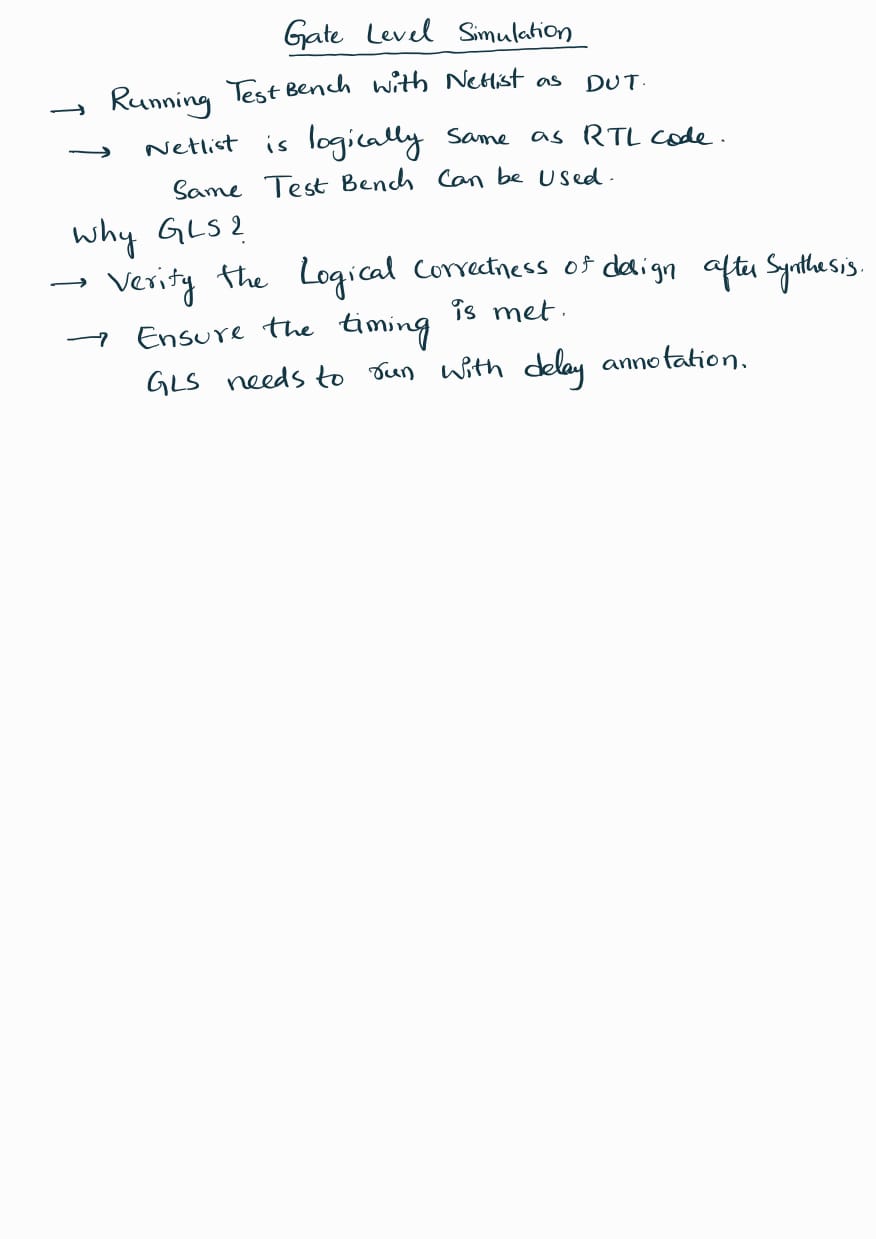 Gate Level Simulation
→ Running Test Bench with Netlist as DUT.
→ Netlist is logically same as RTL code.
Same Test Bench Can be Used.
Why GLS?
→ Verify the Logical Correctness of design after Synthesis.
→ Ensure the timing is met.
GLS needs to run with delay annotation.